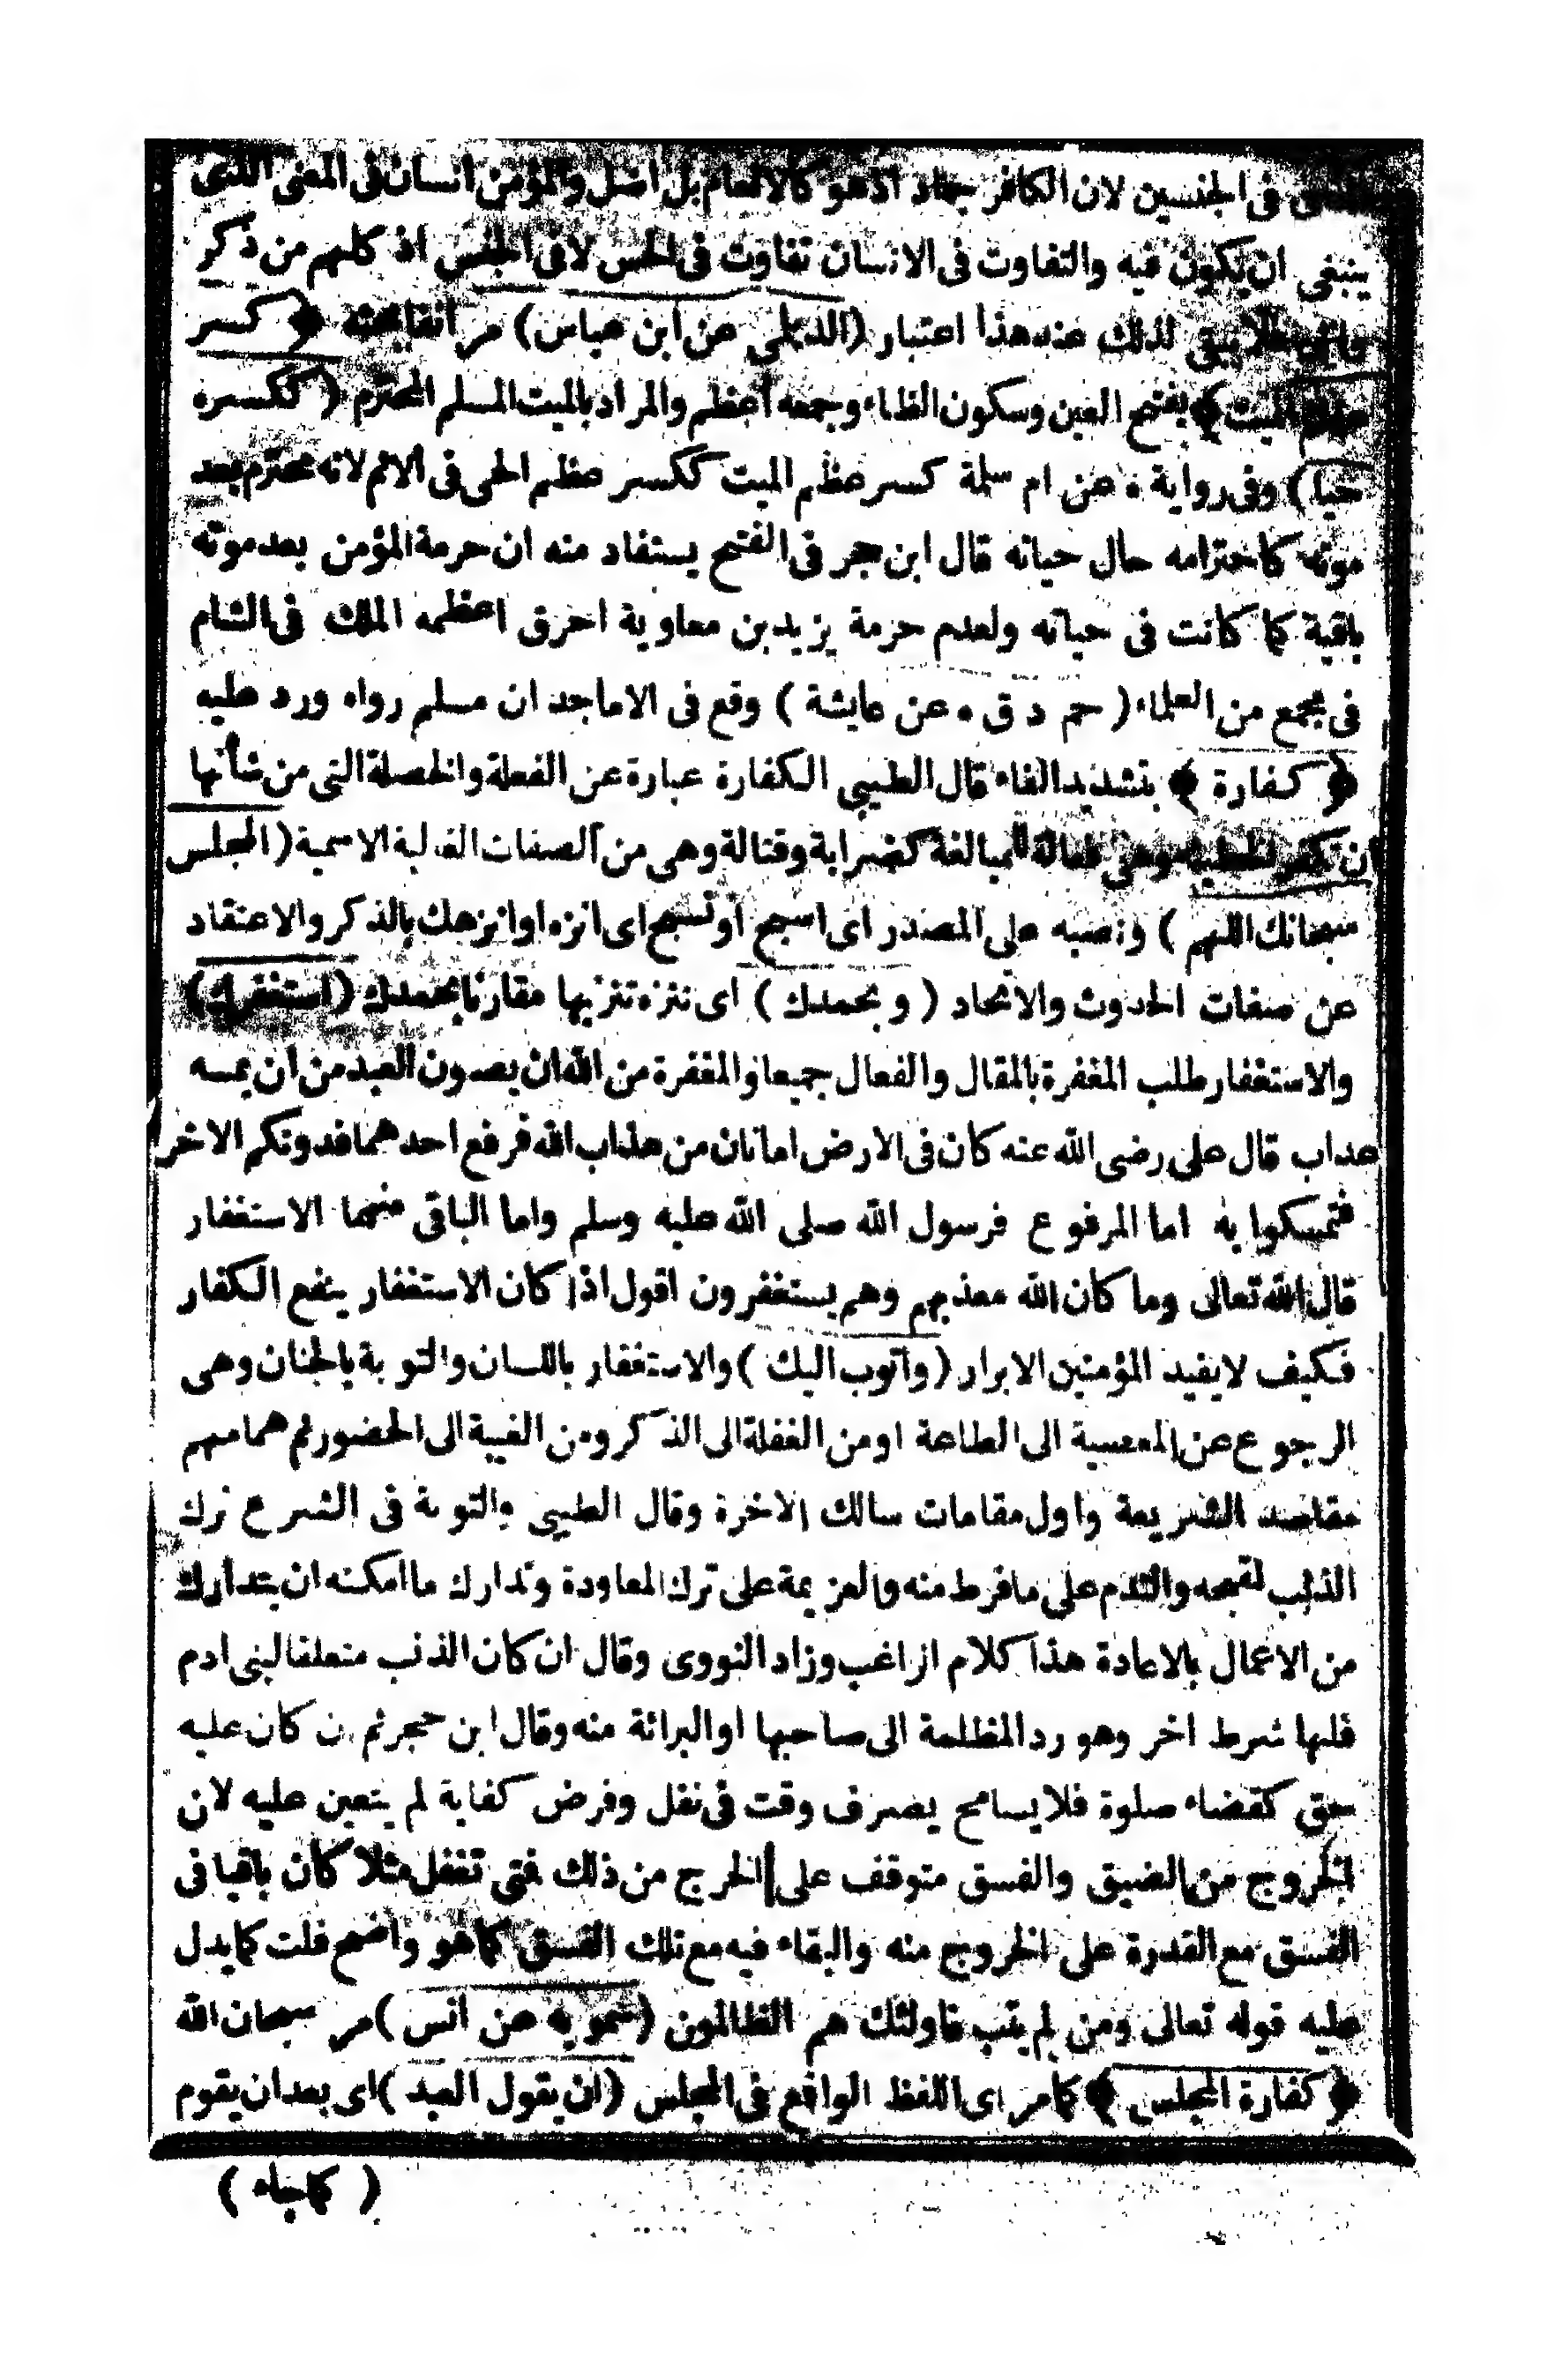 فى الجنسين لان الكافر جماد اذهو كالانعام بل اضل والمؤمن انسان فى المعنى الذى
ينبغى ان يكون فيه والتفاوت فى الانسان تفاوت فى الحس لافى الجنس اذ كلهم من ذكر
لذلك عنده هذا اعتبار (الديلى عن ابن عباس) مر انفا بحثه ﴿ كسر
عظم الميت ﴾ بفتح العين وسكون الظاء وجمعه اعظم والمراد بالميت المسلم المحترم (ككسره
حيا) وفى رواية ه عن ام سلمة كسر عظم الميت ككسر عظم الحى فى الاثم لانه محترم بعد
موته كاحترامه حال حياته قال ابن حجر فى الفتح يستفاد منه ان حرمة المؤمن بعد موته
باقية كما كانت فى حياته ولعدم حرمة يزيد بن معاوية احرق اعظمه الملك فى الشام
فى مجمع من العلماء (حم د ق ه عن عايشة) وقع فى الاماجد ان مسلم رواه ورد عليه
﴿ كفارة ﴾ بتشديد الفاء قال الطيبي الكفارة عبارة عن الفعلة والخصلة التى من شأنها
ان تكفر الخطيئة وهى فعالة للمبالغة كضرابة وقتالة وهى من الصفات الغالبة الاسمية (المجلس
سبحانك اللهم) ونصبه على المصدر اى اسبح او نسبح اى انزه او انزهك بالذكر والاعتقاد
عن صفات الحدوث والاتحاد (وبحمدك) اى ننزه تنزيها مقارنا بحمدك (استغفرك)
والاستغفار طلب المغفرة بالمقال والفعال جميعا والمغفرة من الله ان يصون العبد من ان يمسه
عذاب قال على رضى الله عنه كان فى الارض امانان من عذاب الله فرفع احدهما فدونكم الاخر
فتمسكوا به اما المرفوع فرسول الله صلى الله عليه وسلم واما الباقى منهما الاستغفار
قال الله تعالى وما كان الله معذبهم وهم يستغفرون اقول اذا كان الاستغفار ينفع الكفار
فكيف لايفيد المؤمنين الابرار (واتوب اليك) والاستغفار باللسان والتوبة بالجنان وهى
الرجوع عن المعصية الى الطاعة او من الغفلة الى الذكر ومن الغيبة الى الحضور ثم هما مهم
مقاصد الشريعة واول مقامات سالك الاخرة وقال الطيبى والتوبة فى الشرع ترك
الذنب لقبحه والندم على مافرط منه والعزيمة على ترك المعاودة وتدارك ماامكنه ان يتدارك
من الاعمال بالاعادة هذا كلام الراغب وزاد النووى وقال ان كان الذنب متعلقا لبنى ادم
فلها شرط اخر وهو رد المظلمة الى صاحبها او البرائة منه وقال ابن حجر ثم ان كان عليه
حق كقضاء صلوة فلايسامح بصرف وقت فى نفل وفرض كفاية لم يتعين عليه لان
الخروج من الضيق والفسق متوقف على الخرج من ذلك فتى تنفل مثلا كان باقيا فى
الفسق مع القدرة على الخروج منه والبقاء فيه مع تلك الفسق كماهو واضح قلت كمايدل
عليه قوله تعالى ومن لم يتب فاولئك هم الظالمون (سمويه عن انس) مر سبحان الله
﴿ كفارة المجلس ﴾ كمامر اى اللفظ الواقع فى المجلس (ان يقول العبد) اى بعد ان يقوم
(كماجاء)